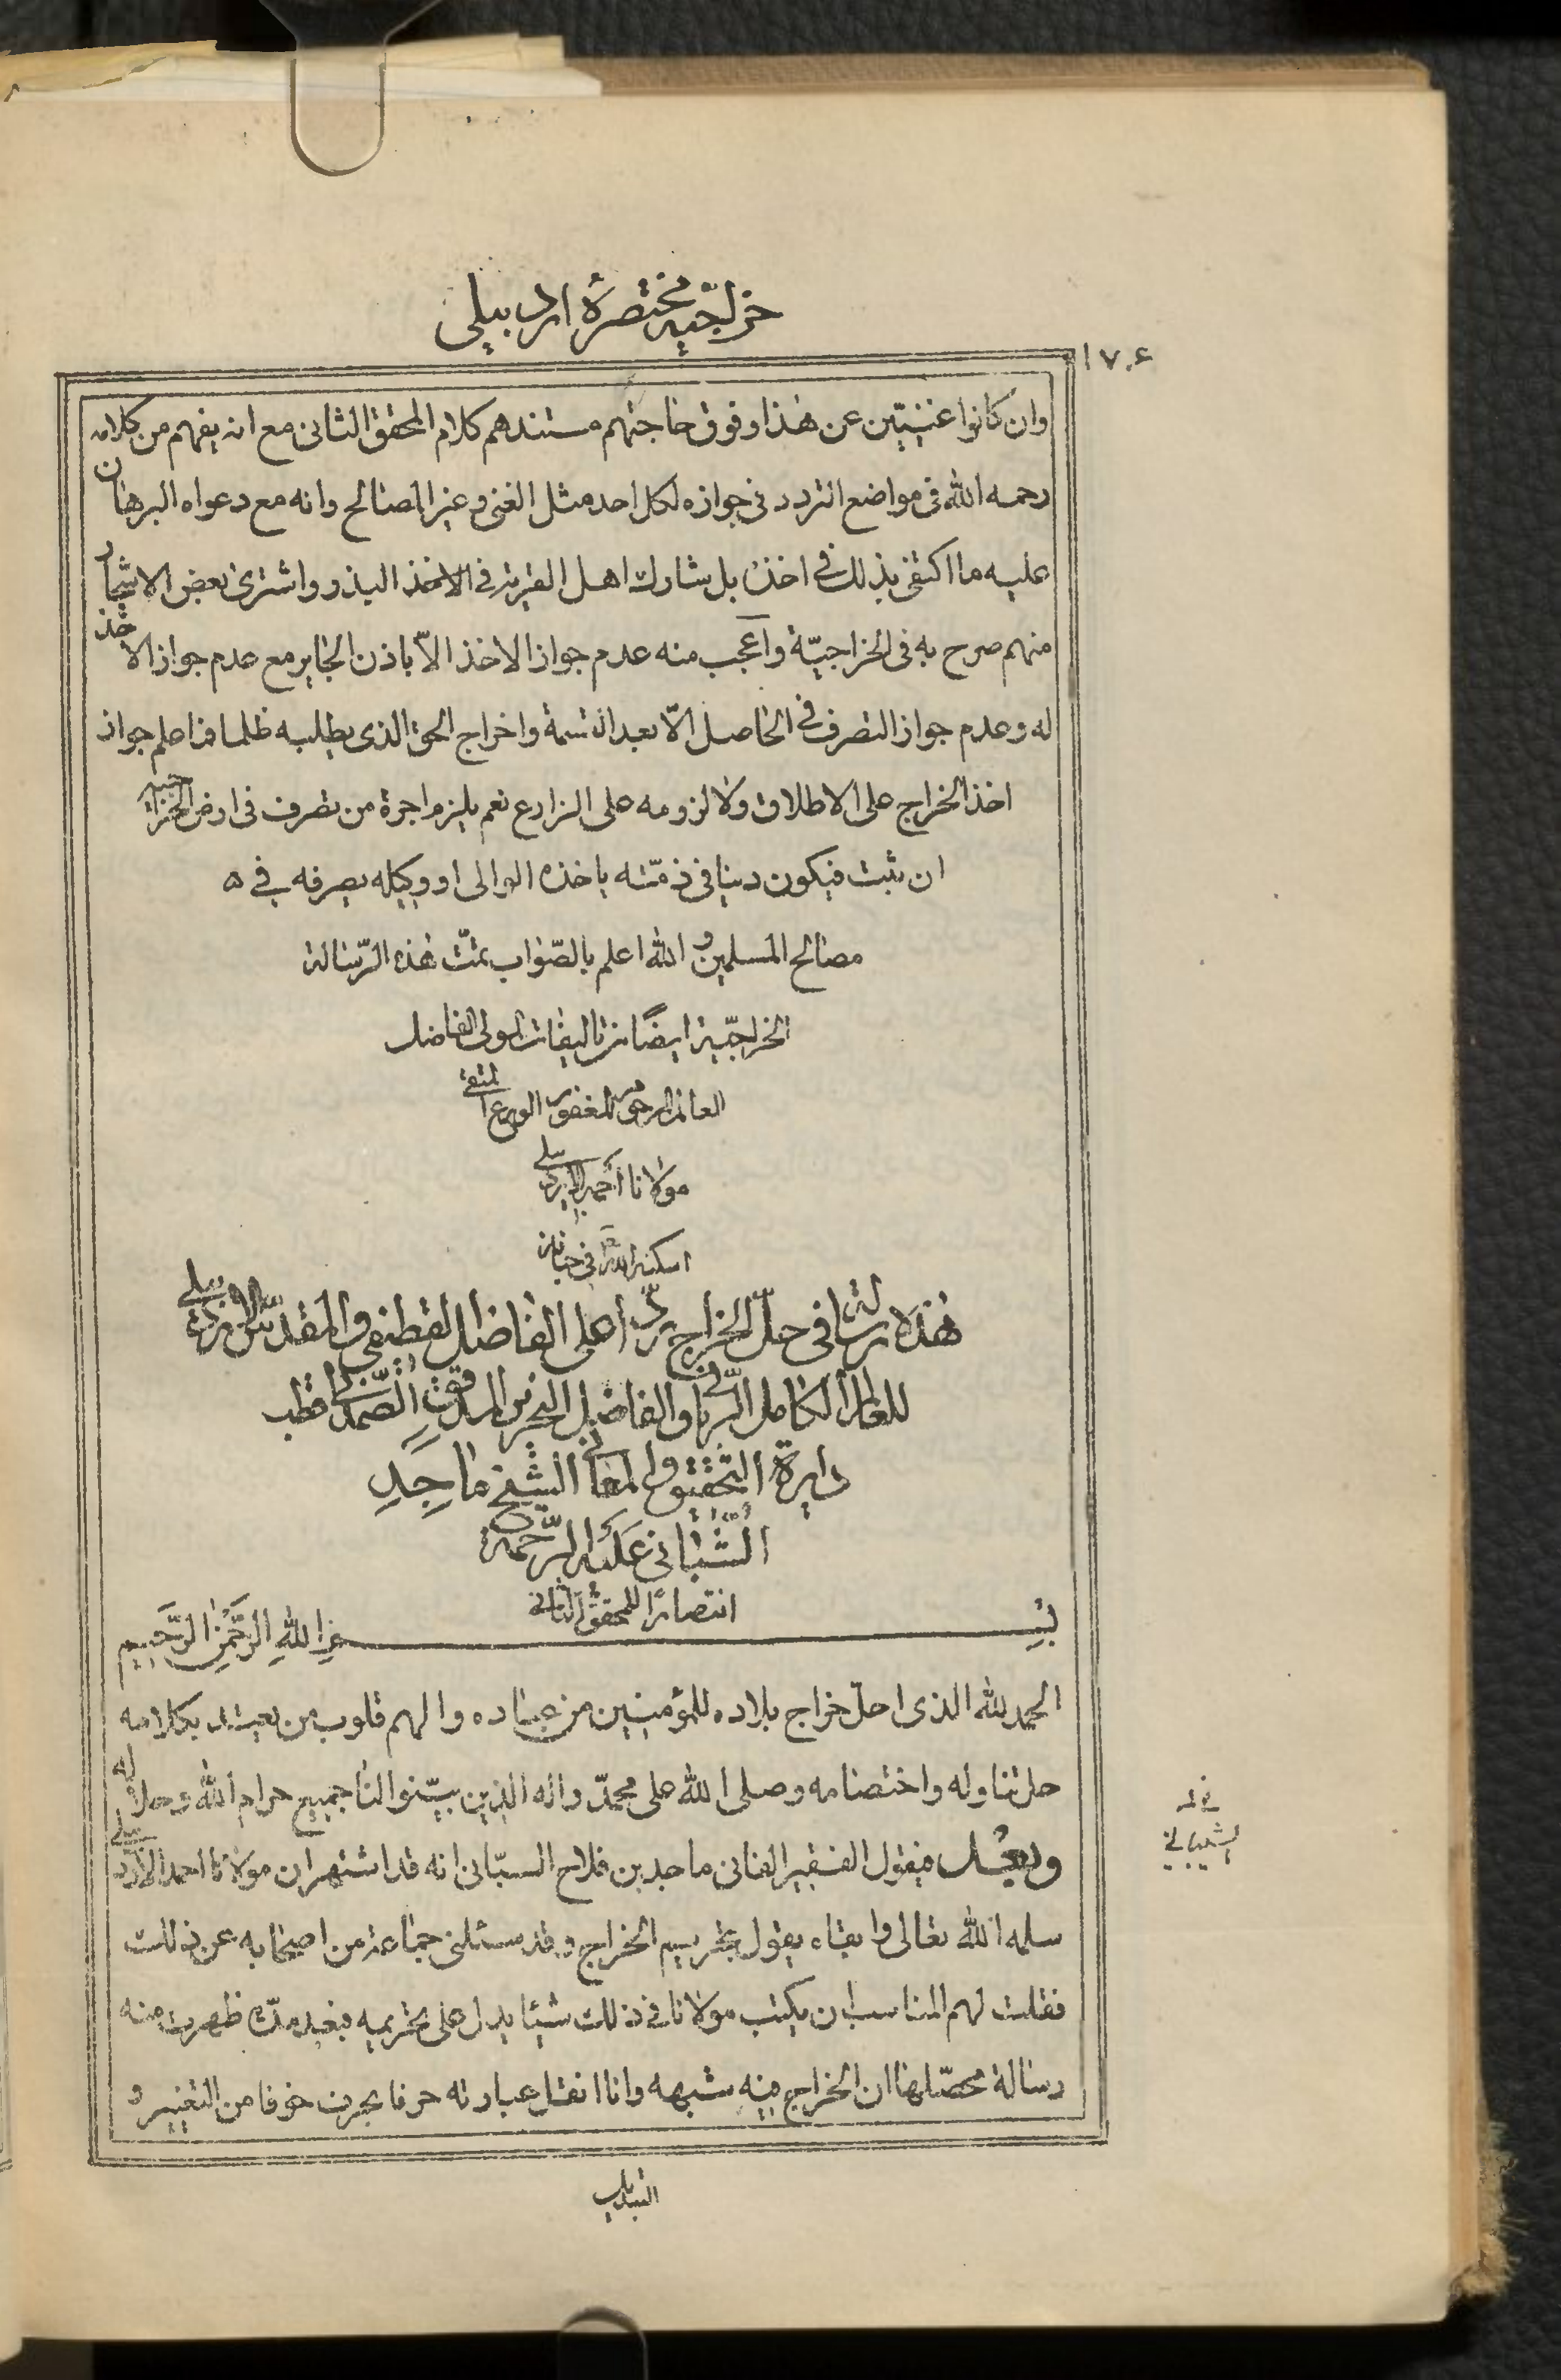 خراجيه مختصرة اردبيلى
١٧٠۶
وان كانوا غنيّين عن هذا وفوق حاجتهم مستندهم كلام المحقق الثانى مع انه يفهم من كلامه
رحمه الله فى مواضع التردد فى جوازه لكل احد مثل الغنى وغير المصالح وانه مع دعواه البرهان
عليه ما اكتفى بذلك فى اخذه بل شارك اهل القرية فى الاخذ البذر واشترى بعض الاشجار
منهم صرح به فى الخراجيّة واعجب منه عدم جواز الاخذ الّا باذن الجاير مع عدم جواز الاخذ
له وعدم جواز التصرف فى الحاصل الّا بعد القسمة واخراج الحق الذى يطلبه ظلما فما اعلم جواز
اخذ الخراج على الاطلاق ولا لزومه على الزارع نعم يلزم اجرة من تصرف فى ارض الخراجية
ان ثبت فيكون دينا فى ذمّته ياخذه الوالى او وكيله يصرفه فى ه
مصالح المسلمين والله اعلم بالصّواب تمّت هذه الرّسالة
الخراجيّة ايضًا من تاليفات المولى الفاضل
العالم المرحوم المغفور الورع المتقى
مولانا احمد الاردبيلى
اسكنه الله فى جنانه
هذه رسالة فى حلّ الخراج ردّا على الفاضل القطيفى والمقدّس الاردبيلى
للعالم الكامل الرّبانى والفاضل النحرير المدقق الصّمدانى قطب
دايرة التحقيق والمعانى الشيخ ماجِدِ
الشّيبانى عليه الرّحمة
انتصارًا للمحقق الثانى
بسم الله الرّحمن الرّحيم
الحمد لله الذى احلّ خراج بلاده للمؤمنين من عباده والهم قلوب من يعتد بكلامه
حل تناوله واختصامه وصلى الله على محمّد واله الذين بيّنوا لنا جميع حرام الله وحلاله
وبعد فيقول الفقير الفانى ماجد بن فلاح السبّانى انه قد اشتهر ان مولانا احمد الاردبيلى
الشيبانى
سلمه الله تعالى وابقاه يقول بتحريم الخراج وقد سئلنى جماعة من اصحابه عن ذلك
فقلت لهم المناسب ان يكتب مولانا فى ذلك شيئا يدل على تحريمه فبعد مدّة ظهرت منه
رسالة محصّلها ان الخراج فيه شبهه وانا انقل عبارته حرفا بحرف خوفا من التغيير و
التبديل